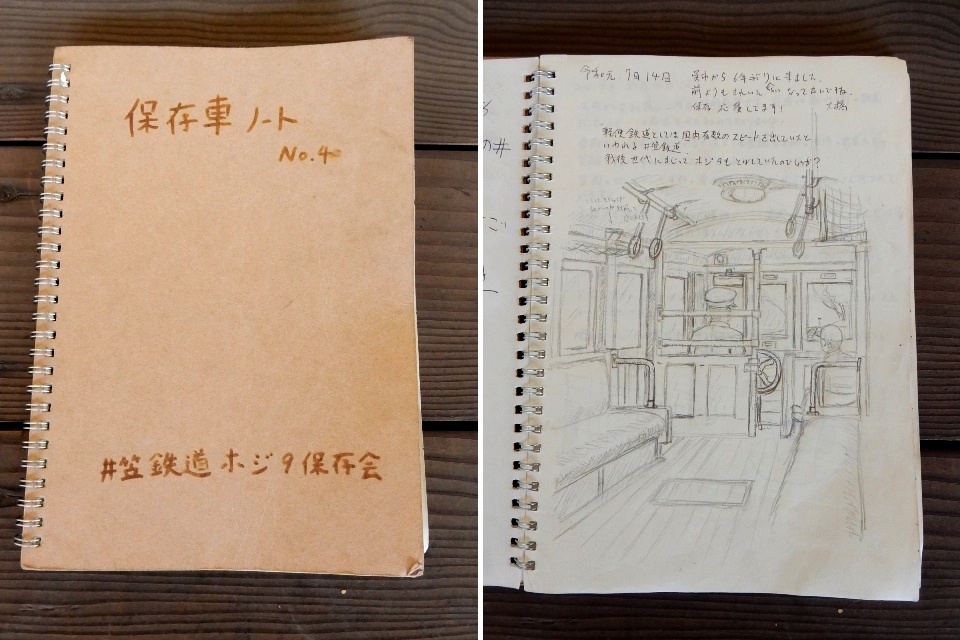 保存車ノート
No.4
#笠鉄道 ホジ9保存会
令和元. 7月14日
呉市から 6年ぶりに来ました。
前よりもきれいに なってないですね。
保存 応援してます! 大橋
軽便鉄道としては国内有数のスピードを出していたと
いわれる #笠鉄道
戦後世代にまじって、ホジ9もとばしていたのでしょうか?